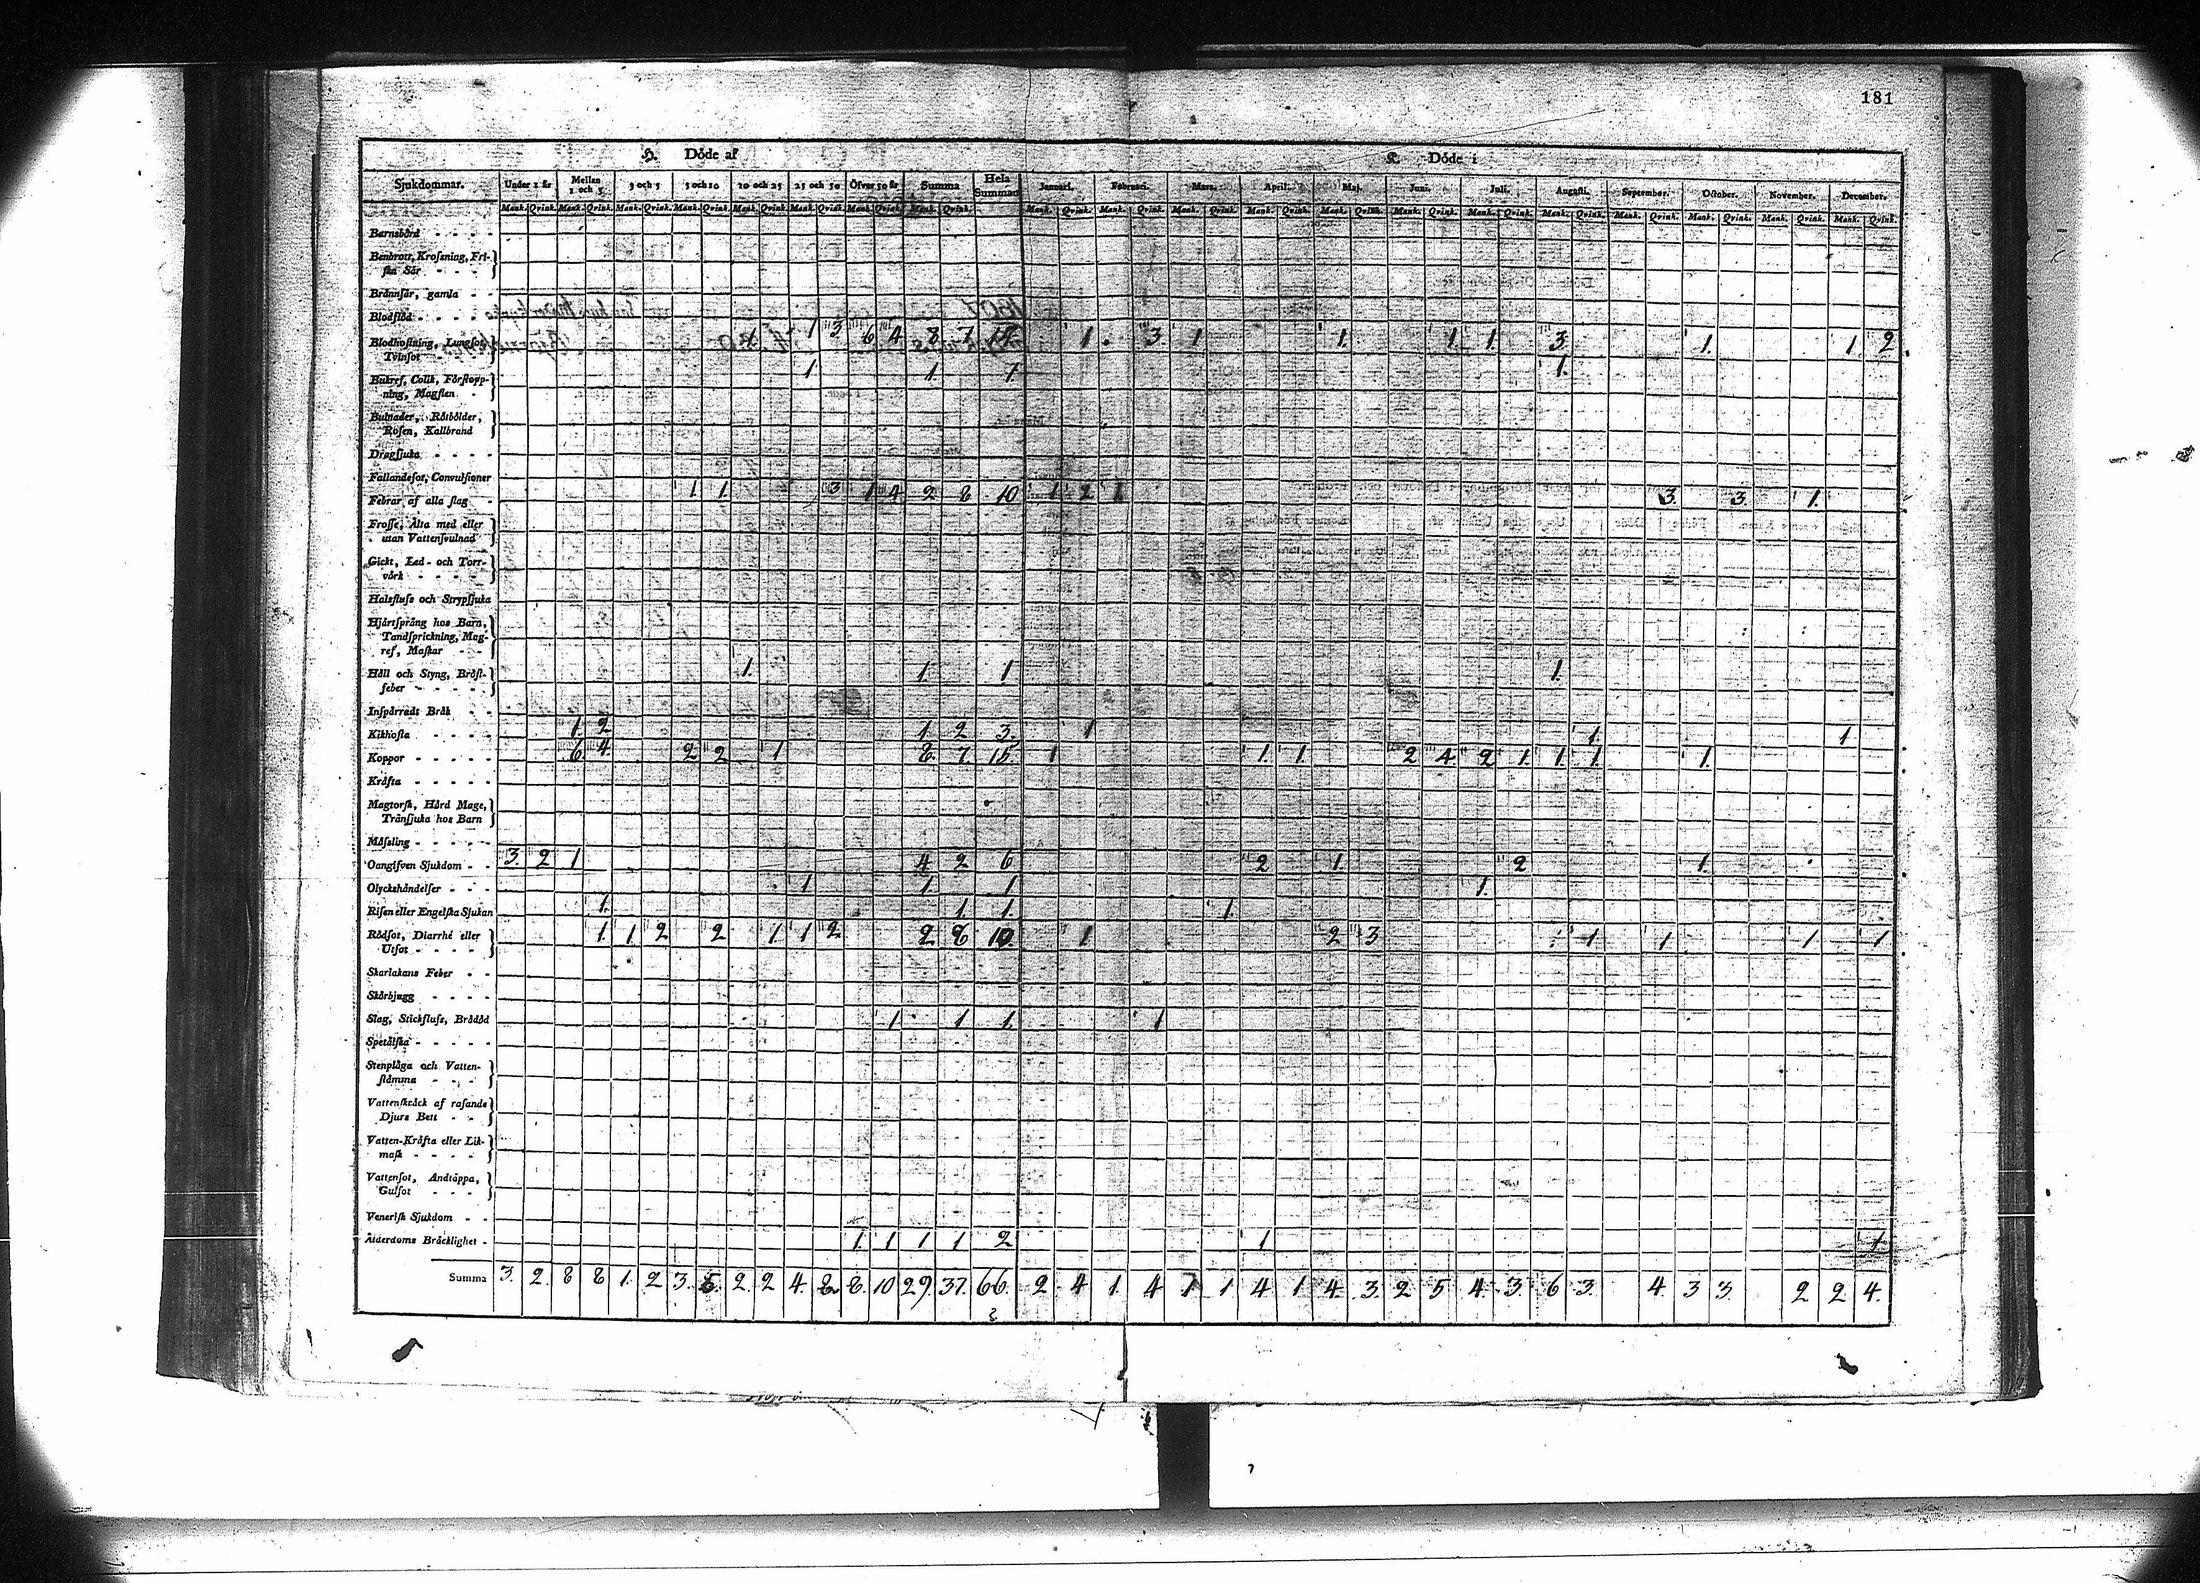 181
H. Döde af K. Döde i
Sjukdommar. Under 1 år Mellan 1 och 3. 3 och 5 5 och 10 10 och 25 25 och 50 Öfver 50 år Summa Hela Summan Januari. Februari. Mars. April. Maj. Juni. Juli. Augusti. September. October. November. December.
Mank. Qvink. Mank. Qvink. Mank. Qvink. Mank. Qvink. Mank. Qvink. Mank. Qvink. Mank. Qvink. Mank. Qvink. Mank. Qvink. Mank. Qvink. Mank. Qvink. Mank. Qvink. Mank. Qvink. Mank. Qvink. Mank. Qvink. Mank. Qvink. Mank. Qvink. Mank. Qvink. Mank. Qvink. Mank. Qvink.
Barnsbörd
Benbrott, Krossning, Fri-
ska Sår
Brännsår, gamla
Blodflöd
Blodhostning, Lungsot, 1 3 6 4 8 7 15 1 3 1 1. 1 1. 3 1. 1 2
Tvinsot
Bukref, Colik, Förstopp- 1. 1. 1 1.
ning, Magsten
Bulnader, Rötbölder,
Rosen, Kallbrand
Dragsjuka
Fallandesot, Convulsioner
Febrar af alla slag 1. 1. 3 1 4 2 8 10 1 2 1 3. 3. 1.
Frosse, Älta med eller
utan Vattensvulnad
Gickt, Led- och Torr-
värk
Halsfluss och Strypsjuka
Hjärtsprång hos Barn,
Tandsprickning, Mag-
ref, Maskar
Håll och Styng, Bröst- 1. 1. 1. 1.
feber
Inspärradt Bråk
Kikhosta 1. 2 1 2 3. 1 1. 1
Koppor 6 4. 2 2 1 8. 7. 15. 1 1. 1. 2 4. 2 1. 1. 1. 1.
Kräfta
Magtorsk, Hård Mage,
Transjuka hos Barn
Mässling
Oangifven Sjukdom 3. 2 1 4 2 6 2 1. 2 1.
Olyckshändelser 1 1. 1 1.
Risen eller Engelska Sjukan 1. 1. 1. 1.
Rödsot, Diarrhé eller 1. 1 2 2 1. 1 2 2 8 10. 1 2 3 1 1 1 1
Utsot
Skarlakans Feber
Skörbjugg
Slag, Stickfluss, Brådöd 1 1 1. 1
Spetälska
Stenplåga och Vatten-
stämma
Vattenskräck af rasande
Djurs Bett
Vatten-Kräfta eller Lik-
mask
Vattensot, Andtäppa,
Gulsot
Venerisk Sjukdom
Ålderdoms Bräcklighet 1. 1 1 1 2 1 1
Summa 3. 2. 8 8 1. 2 3. 5. 2 2 4. 8. 8. 10 29. 37. 66. 2 4 1. 4 1 1 4 1 4. 3. 2 5 4. 3. 6 3. 4. 3 3. 2 2 4.